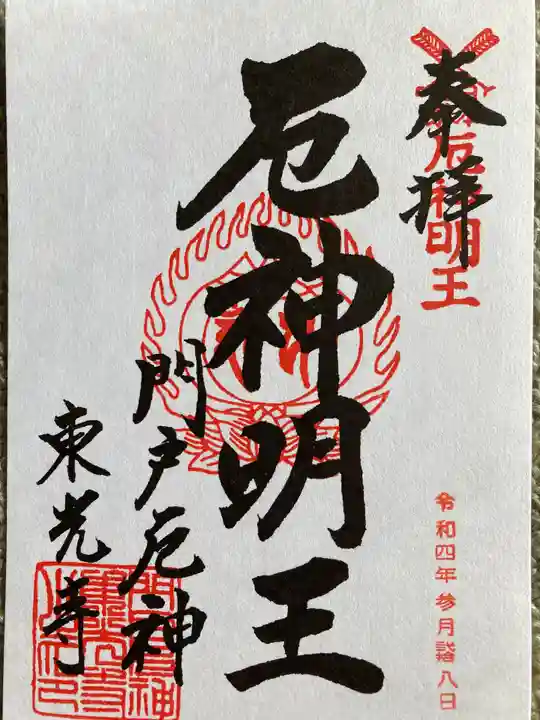 奉拝
厄神明王
令和四年参月弐拾八日
厄神明王
門戸厄神
東光寺